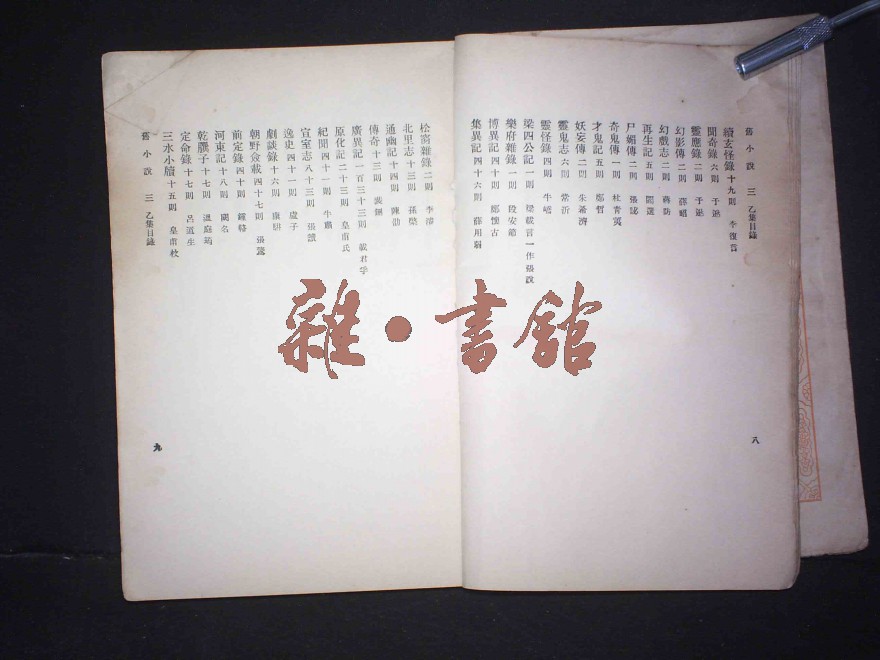 舊小說 三 乙集目錄
續玄怪錄 十九則 李復言
聞奇錄 六則 于逖
靈應錄 二則 于逖
幻影傳 二則 薛昭
幻戲志 二則 蔣防
再生記 五則 閻選
尸媚傳 二則 張泌
奇鬼傳 一則 杜青荑
才鬼記 五則 鄭哲
妖妄傳 二則 朱希濟
靈鬼志 六則 常沂
靈怪錄 四則 牛嶠
梁四公記 一則 梁載言一作張說
樂府雜錄 一則 段安節
博異記 四十則 鄭懷古
集異記 四十六則 薛用弱
八
松窗雜錄 二則 李濬
北里志 十三則 孫棨
通幽記 十四則 陳劭
傳奇 十三則 裴鉶
廣異記 一百三十三則 戴君孚
原化記 二十三則 皇甫氏
紀聞 四十一則 牛肅
宣室志 八十三則 張讀
逸史 四十一則 盧子
劇談錄 十六則 康駢
朝野僉載 四十七則 張鷟
前定錄 四十則 鍾輅
河東記 十八則 闕名
乾𦠆子 十七則 溫庭筠
定命錄 十七則 呂道生
三水小牘 十五則 皇甫枚
舊小說 三 乙集目錄
九
雜·書館